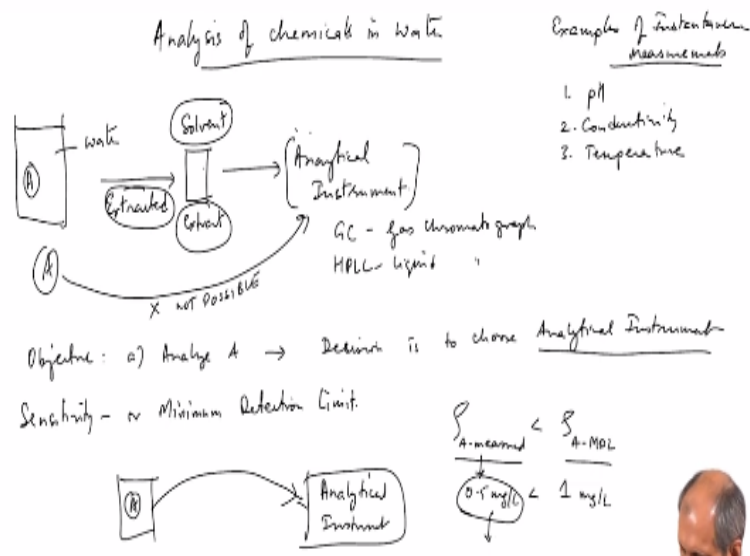 Analysis of chemicals in water
Examples of Instantaneous
measurements
1. pH
2. Conductivity
3. Temperature
water
A
Extracted
Solvent
Extract
Analytical
Instrument
GC - gas chromatograph
HPLC - liquid "
A
X NOT POSSIBLE
Objective: a) Analyze A → Decision is to choose Analytical Instrument
Sensitivity - or Minimum Detection Limit.
ρA-measured < ρA-MDL
0.5 mg/L < 1 mg/L
A
Analytical
Instrument